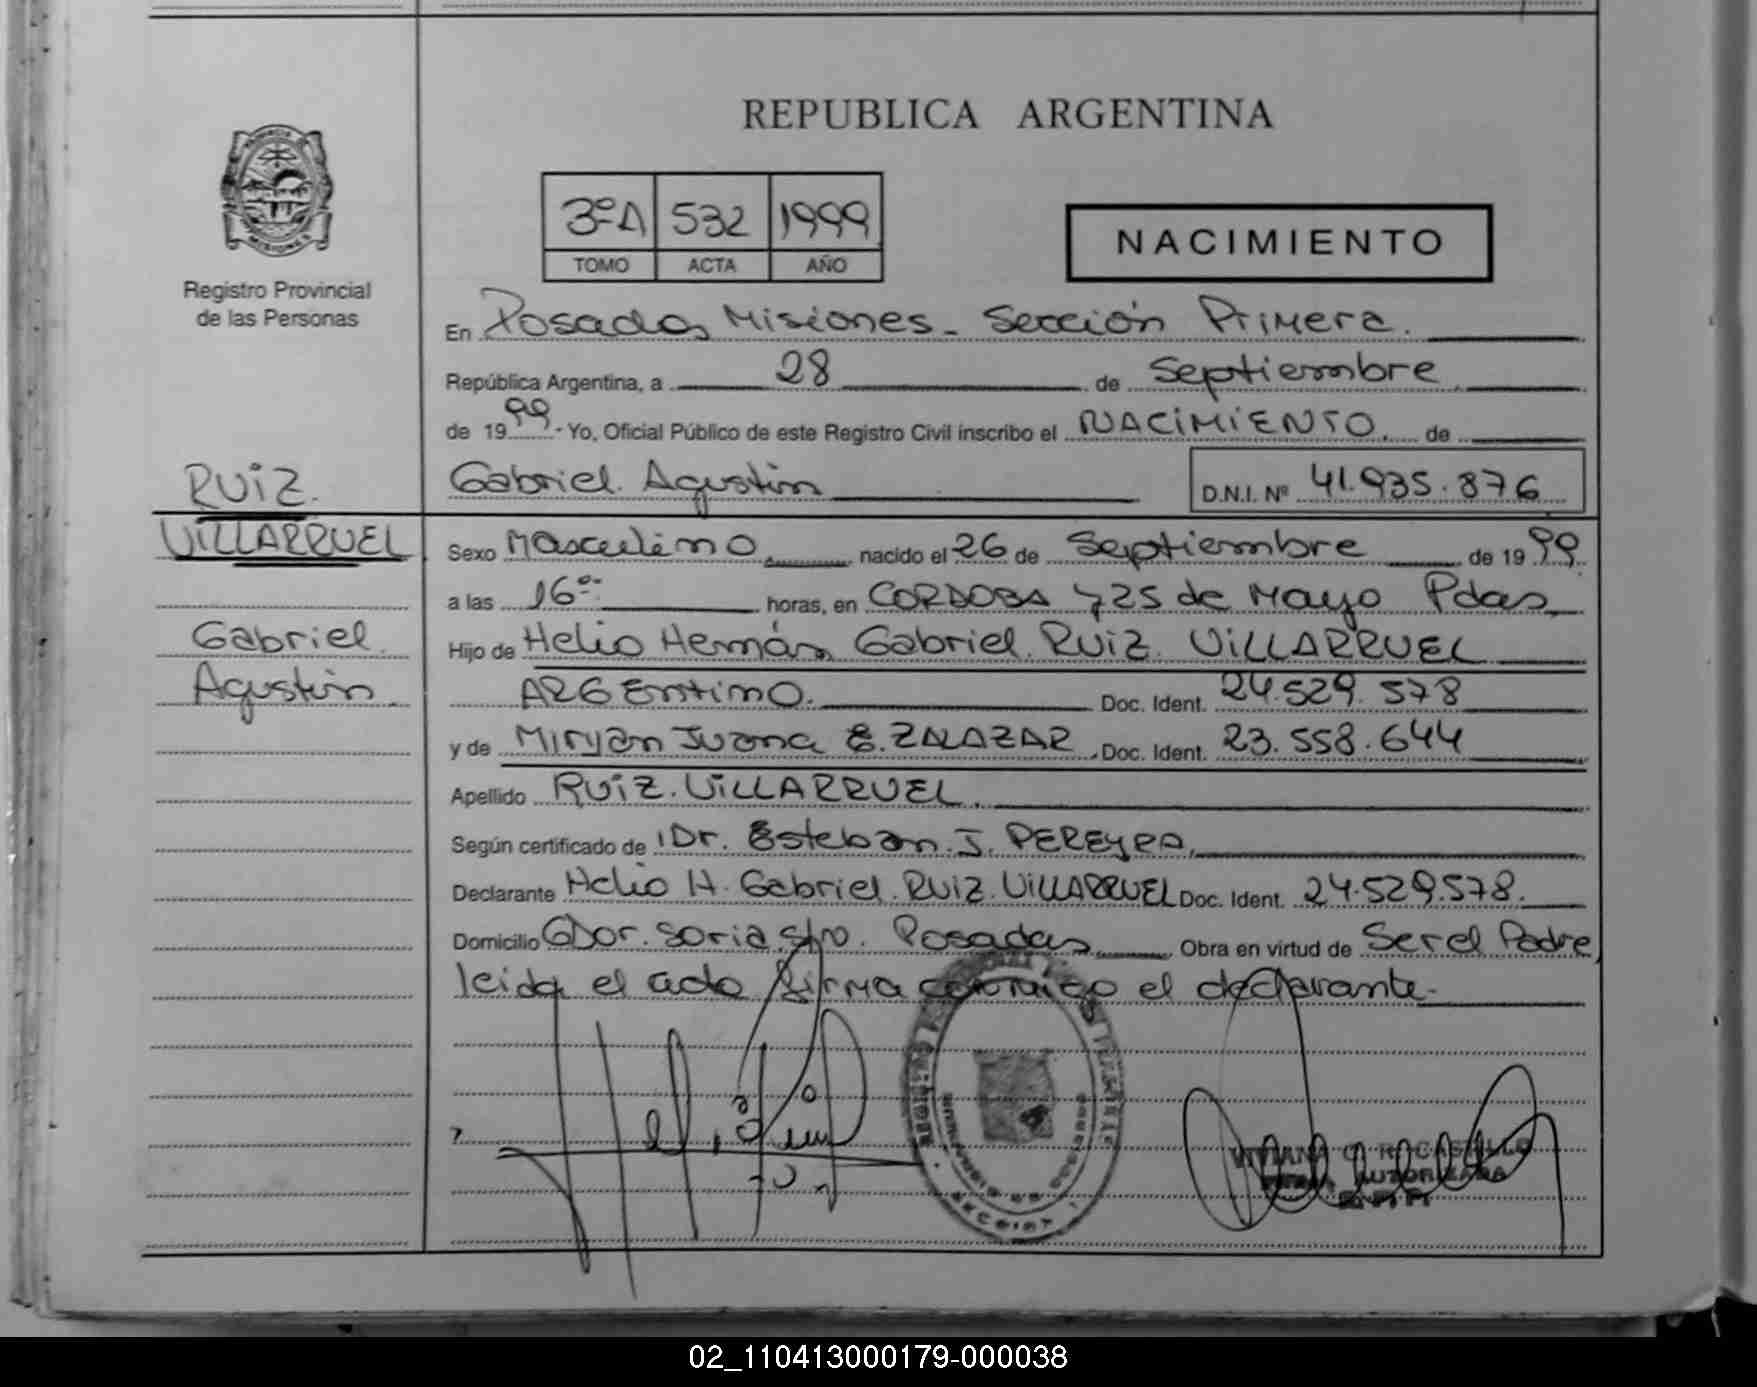 REPUBLICA ARGENTINA
3ºA 532 1999
TOMO ACTA AÑO
NACIMIENTO
Registro Provincial
de las Personas
En Posadas, Misiones - Sección Primera.
República Argentina, a 28 de Septiembre
de 1999 - Yo, Oficial Público de este Registro Civil inscribo el NACIMIENTO de
RUIZ.
Gabriel Agustín D.N.I. Nº 41.935.876
VILLARRUEL
Sexo Masculino nacido el 26 de Septiembre de 1999
a las 16 horas, en CORDOBA y 25 de Mayo Pdas,
Gabriel
Hijo de Helio Hernán Gabriel RUIZ VILLARRUEL
Agustín
ARGENTINO. Doc. Ident. 24.529.578
y de Mirian Juana E. ZALAZAR Doc. Ident. 23.558.644
Apellido RUIZ VILLARRUEL
Según certificado de Dr. Esteban J. PEREYRA,
Declarante Helio H. Gabriel RUIZ VILLARRUEL Doc. Ident. 24.529.578.
Domicilio Gdor. Soria S/nº. Posadas Obra en virtud de Ser el Padre,
leida el acta firma conmigo el declarante.
02_110413000179-000038